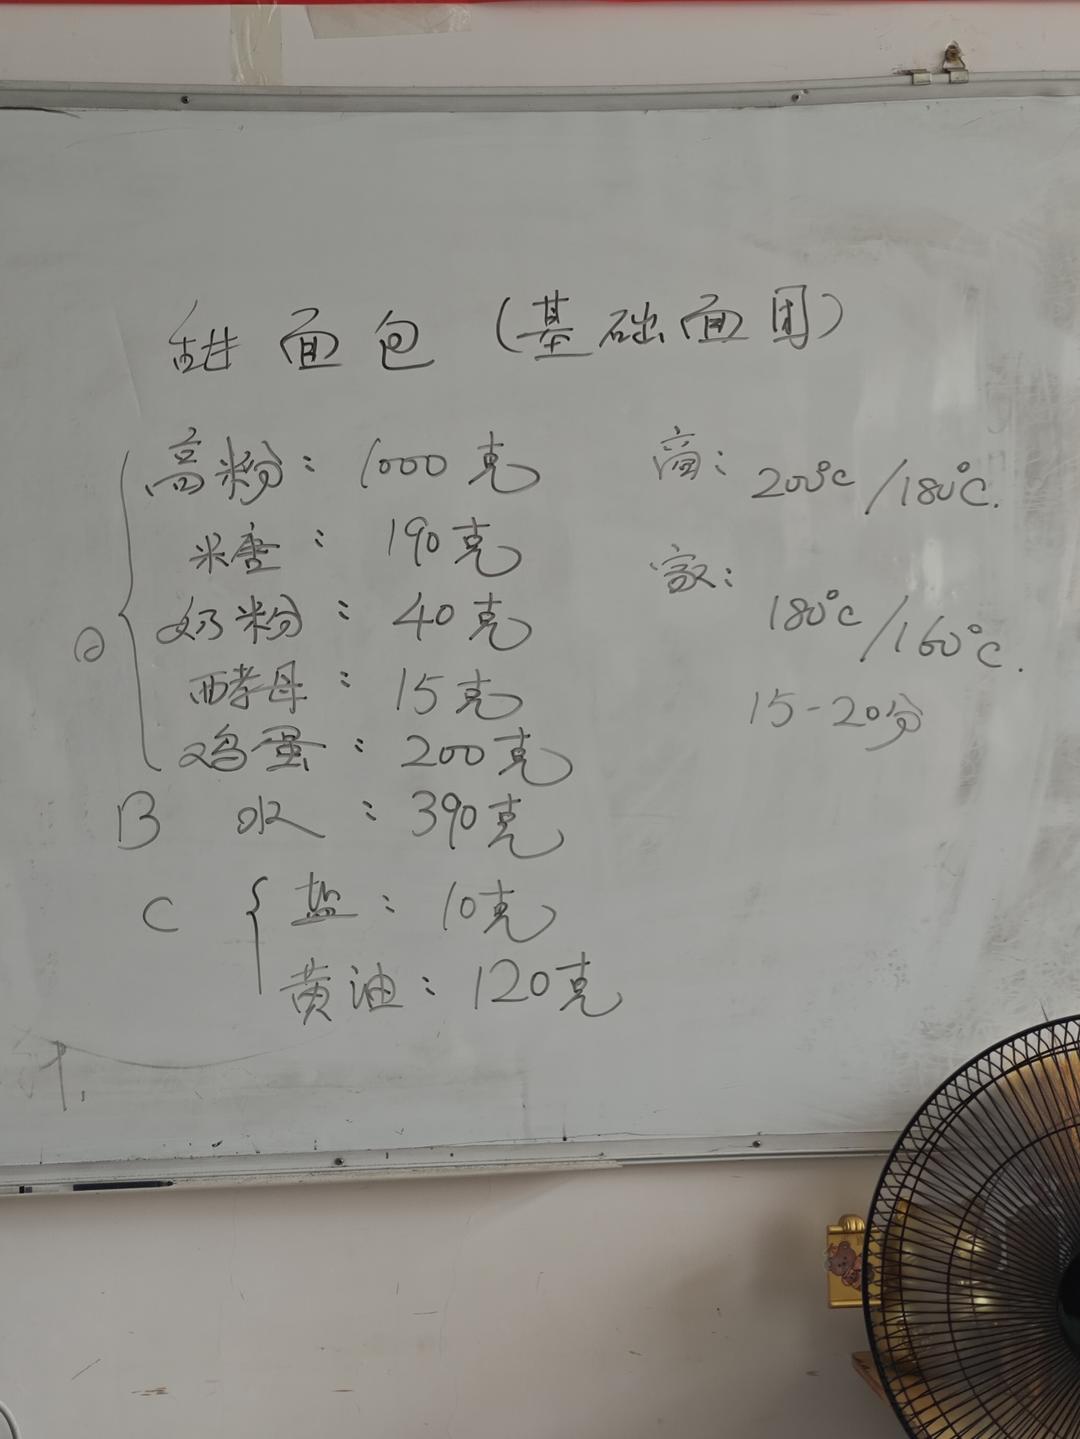 甜面包（基础面团）
高粉：1000克
米唐：190克
奶粉：40克
a
酵母：15克
鸡蛋：200克
B 水：390克
C 盐：10克
黄油：120克
商：200℃/180℃.
家：180℃/160℃.
15-20分